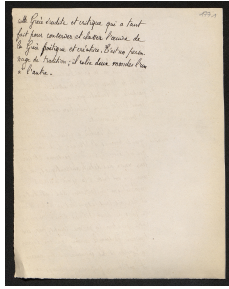 La Grèce érudite et critique qui a tant
fait pour conserver et classer l'œuvre de
la Grèce poétique et créatrice. C'est un person
nage de tradition ; il relie deux mondes l'un
à l'autre.